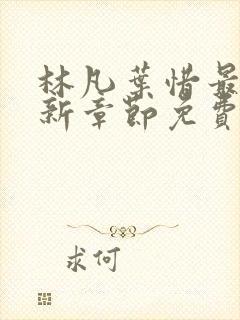 林凡葉惜最
新章節免費
求何